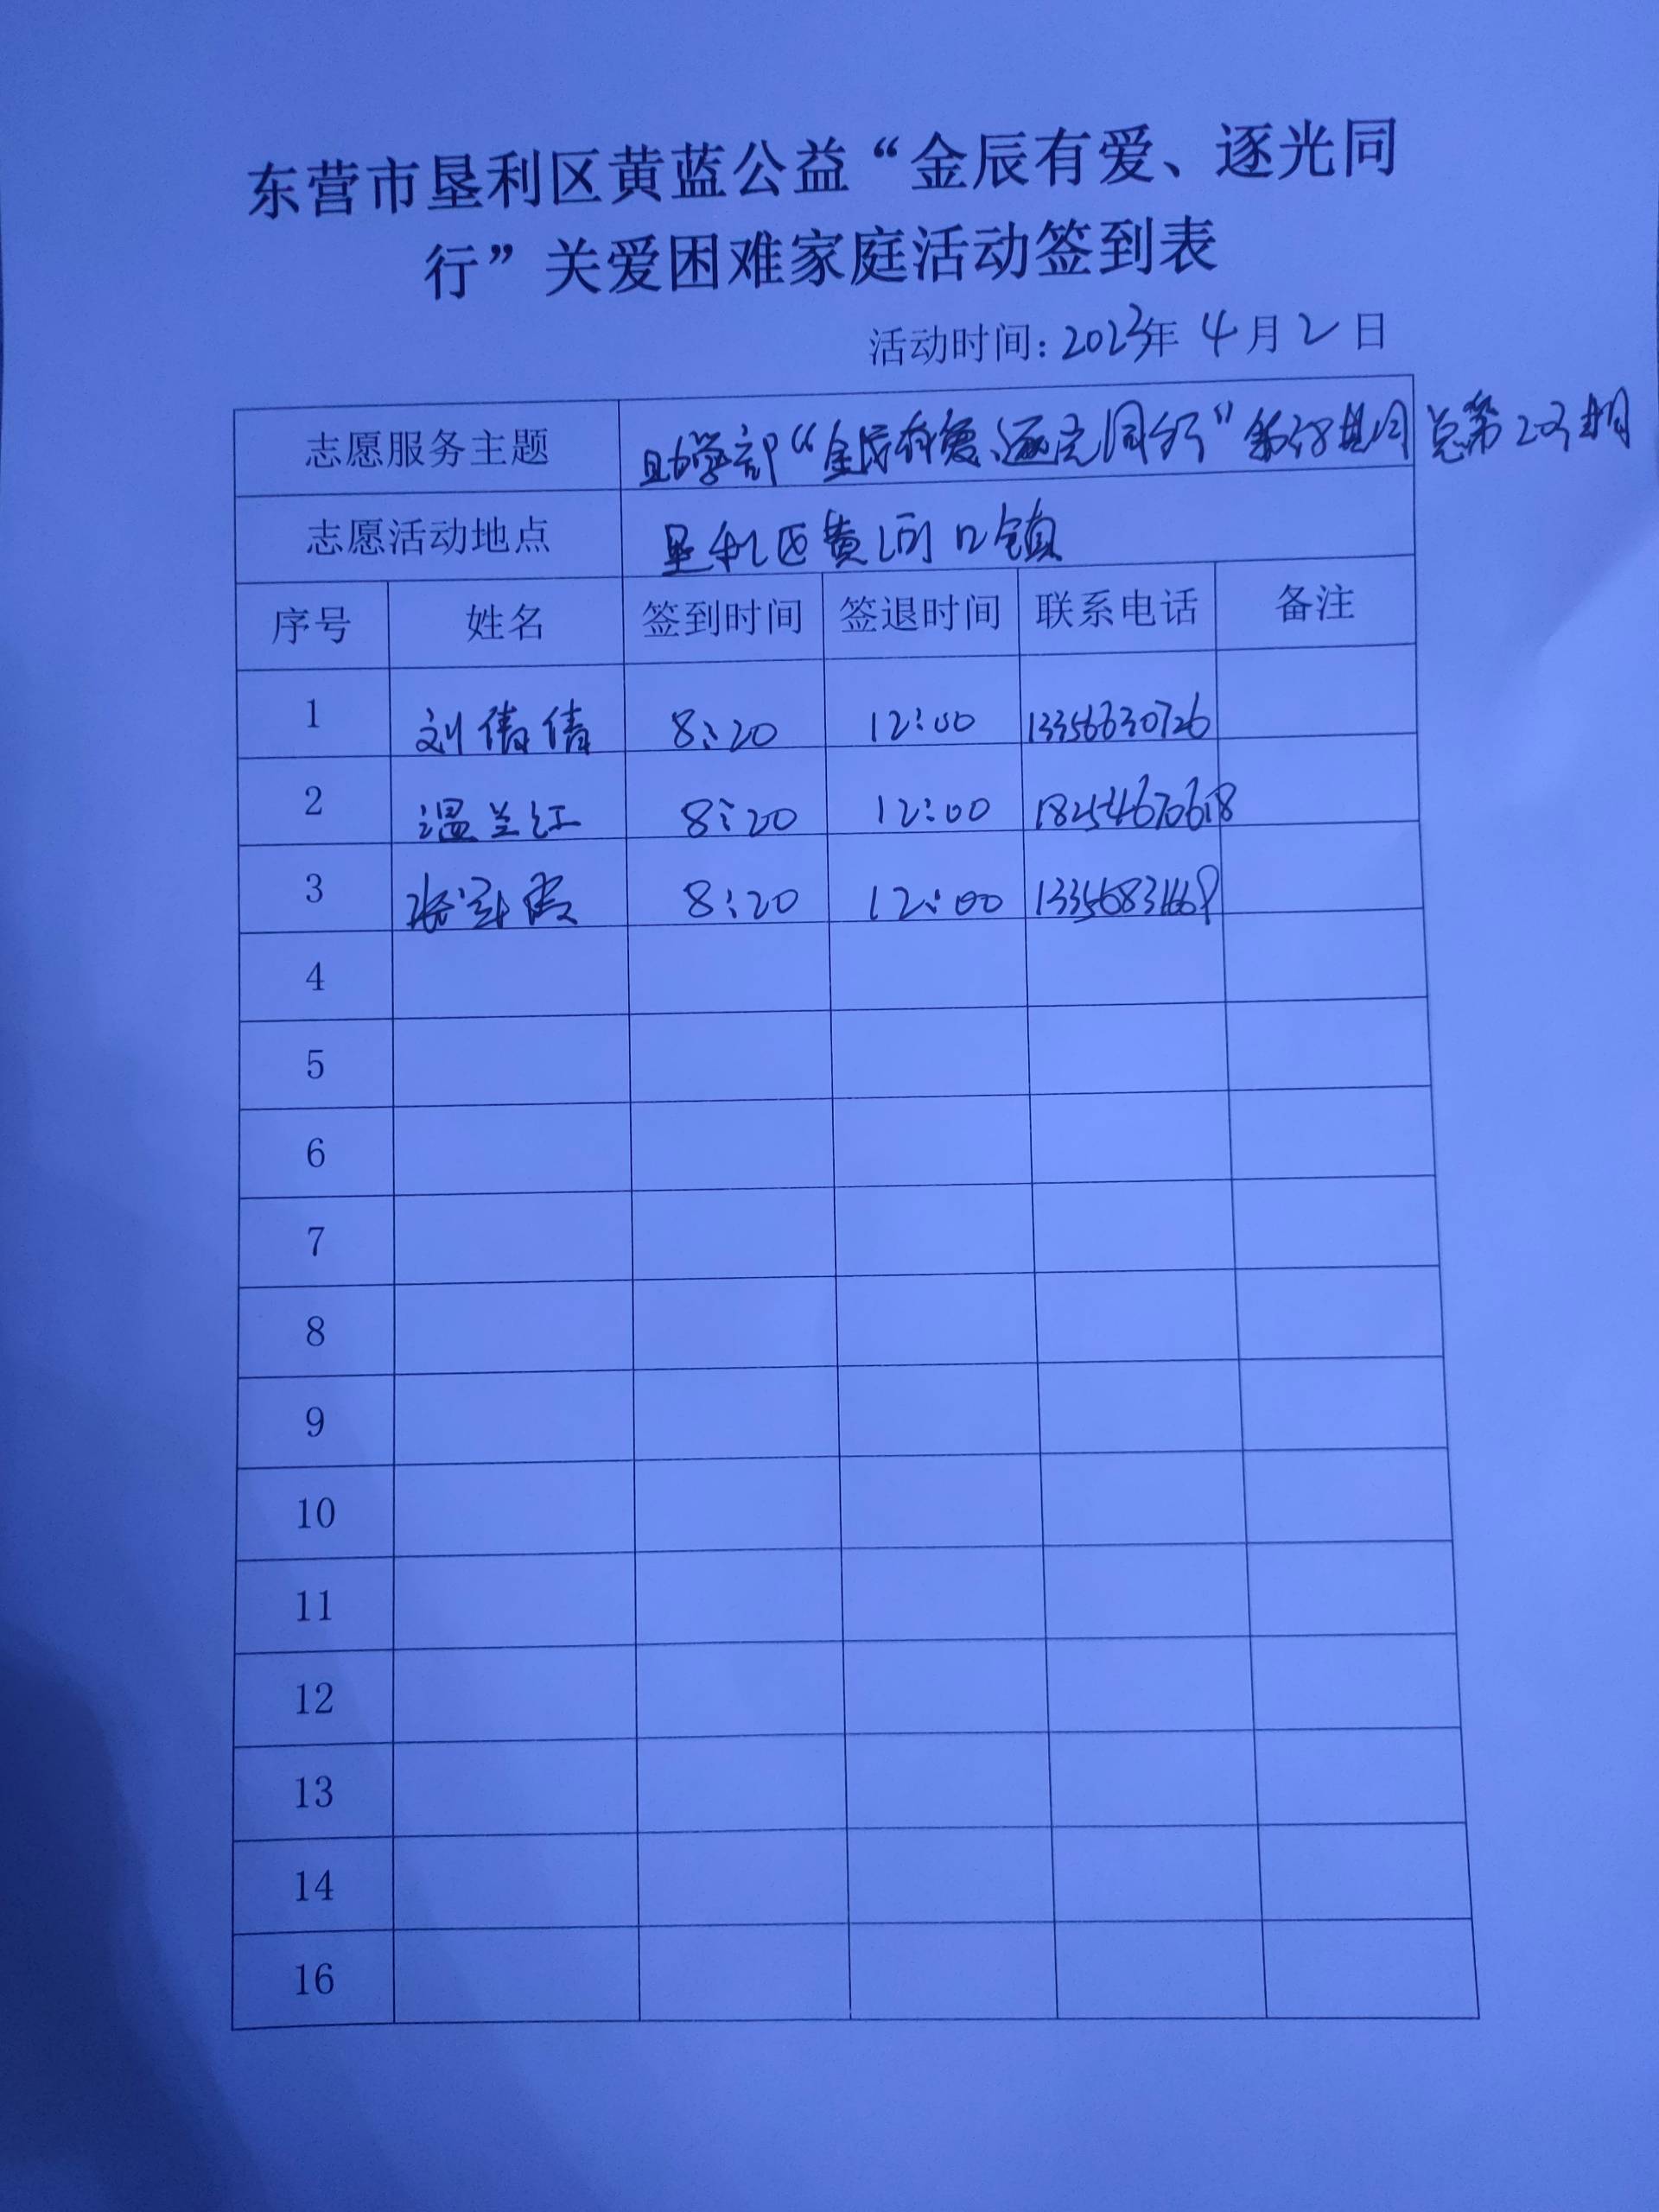 东营市垦利区黄蓝公益“金辰有爱、逐光同
行”关爱困难家庭活动签到表
活动时间：2023年 4月2日
志愿服务主题 助学部“金辰有爱、逐光同行” 总第 期
志愿活动地点 垦利区黄河口镇
序号 姓名 签到时间 签退时间 联系电话 备注
1 刘倩倩 8:20 12:00 13356630726
2 温兰红 8:20 12:00 18254670618
3 8:20 12:00
4
5
6
7
8
9
10
11
12
13
14
16